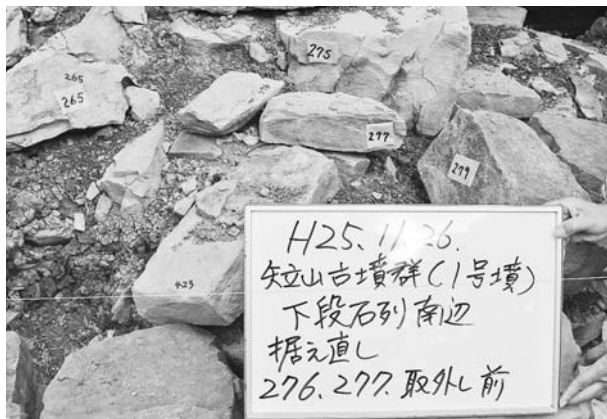 275
265
265
277
279
423
H25.11.26.
矢立山古墳群(1号墳)
下段石列南辺
据え直し
276.277.取外し前